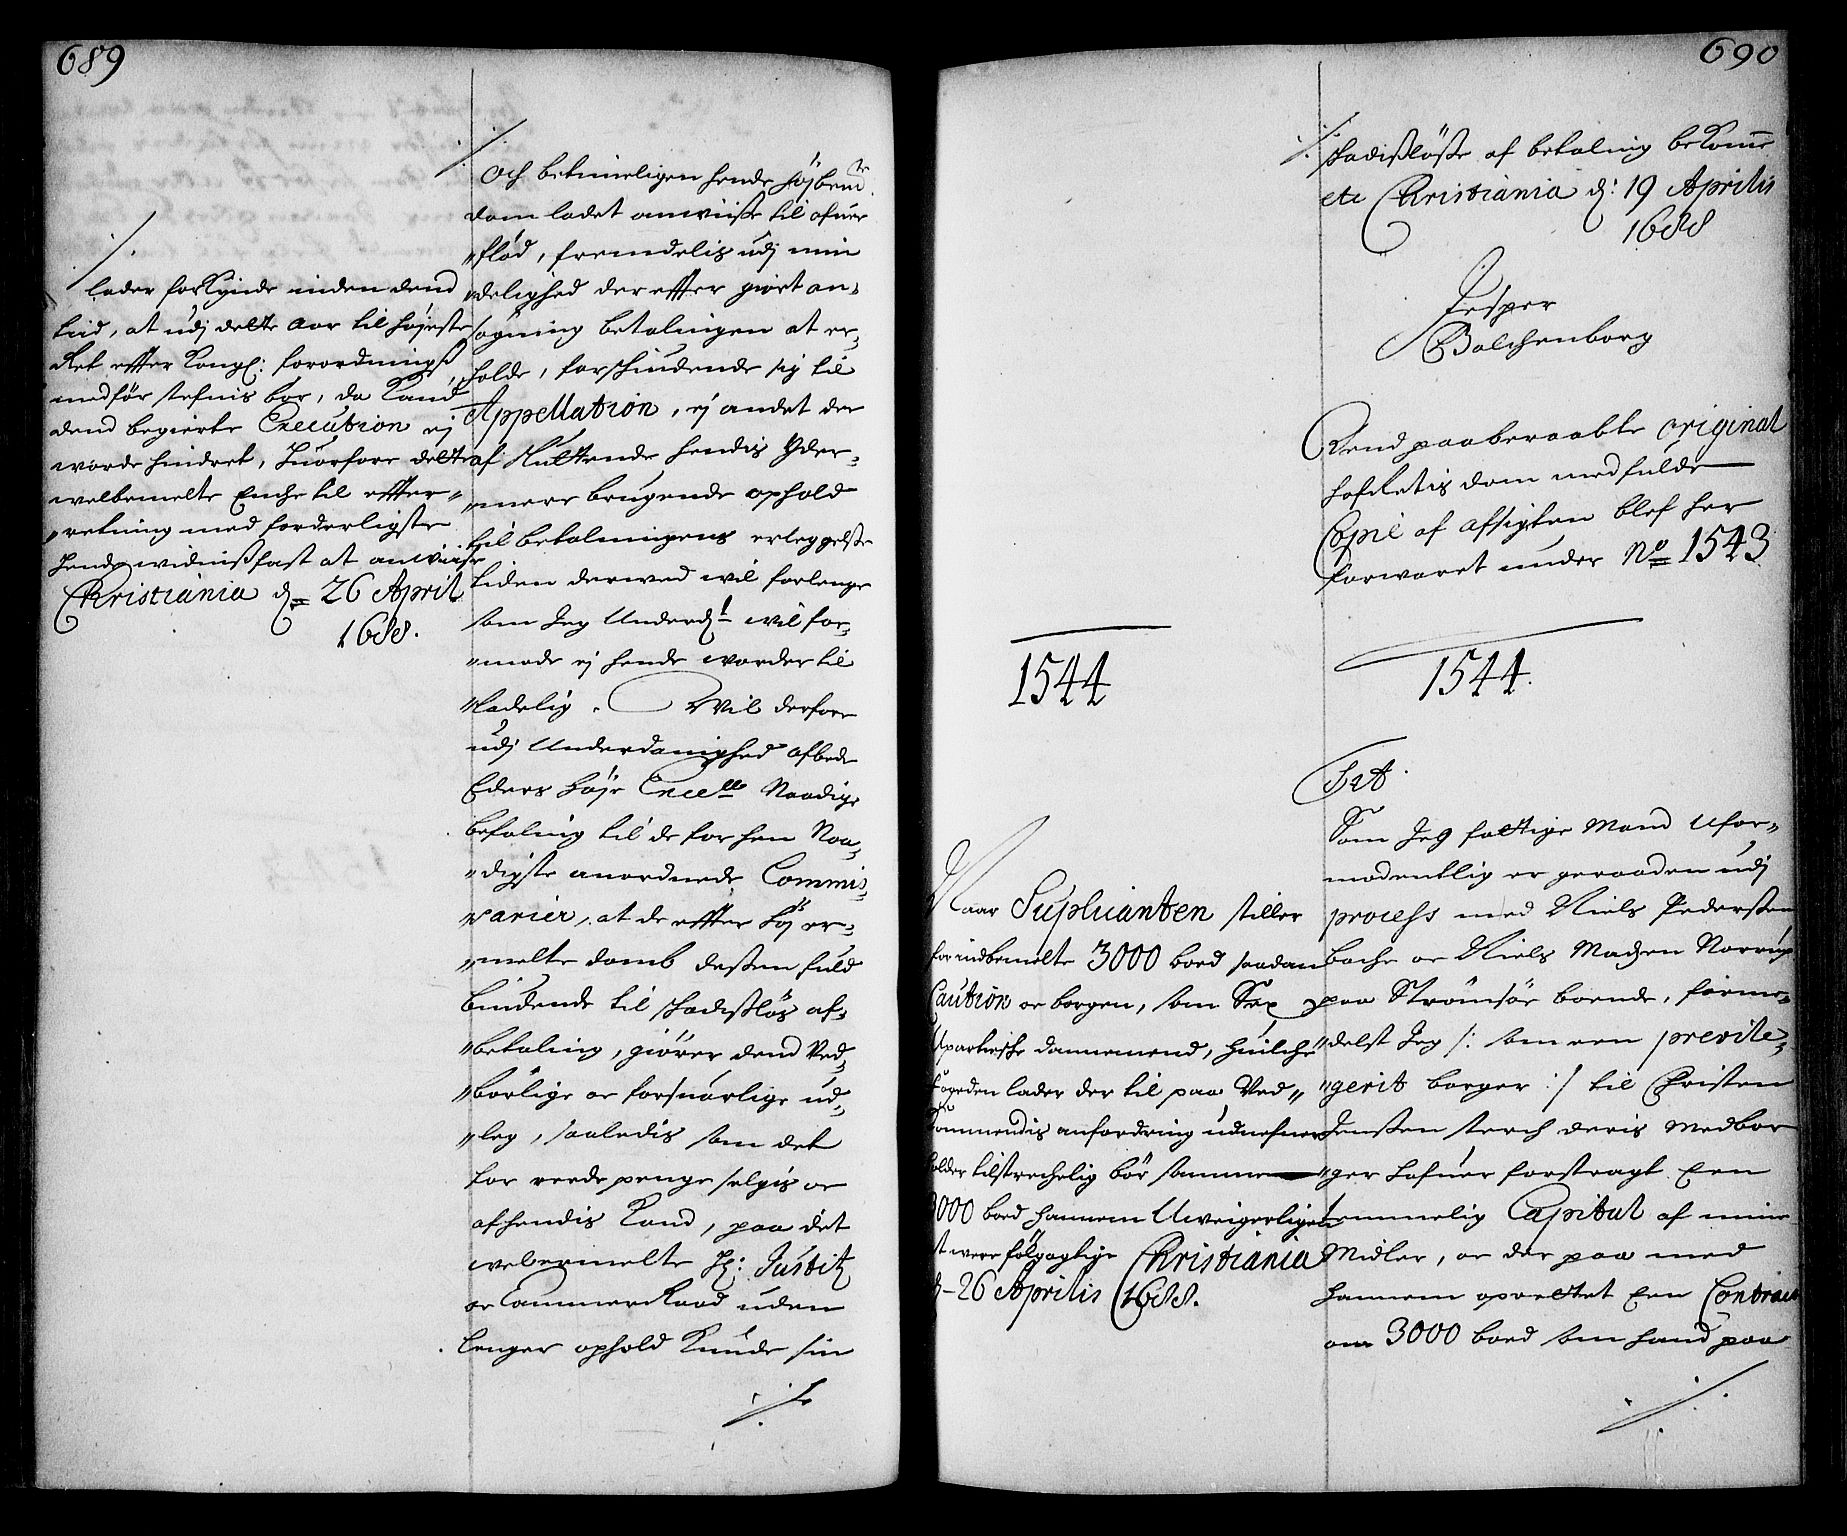 689
./.
lader forkynde inden dend
tiid, at udj dette Aar til højeste
Ret effter Kongl: forordningß
medför stefnis bör, da Kand
dend begierte Execution ej
worde hindret, huorfore dette
welbemelte Enche til effter-
"retning med forderligste
hende widnißfast at anwiise
Christiania d. 26 April
1688.
./.
Och betimeligen hende höjbem.te
dom ladet anwiiße til ofuer
"flöd, fremdelis udj min
"delighed der effter giort an-
sögning betalingen at er-
holde, forskiudende sig til
Appellation, ej andet der
af sluttende hendis Yder-
"mere brugende ophold
til betalningens erleggelße
tiden derwed wil forlenge
som Jeg Underd.l wil for-
"mode ej hende worder til
"ladelig. Wil derfore
udj Underdanighed afbede
Eders höje Excell Naadige
befaling til de for hen Naa-
"digste anordnede Commis-
"sarier, at de effter höj er-
"melte domb deßen fuld
bindende til skadißlös af-
"betaling, giörer dend Ved-
"börlige oc forsuarlige ud-
"leg, saaledis som det
for reede penge selgis oc
afhendis Kand, paa det
welermelte Hr: Justitz
oc CammerRaad uden
lenger ophold Kunde sin
./.
690
./.
skadißlöße af betaling bekomme
etc Christiania d: 19 Aprilis
1688
Jesper
Balchenborg
Dend paaberaabte original
hofRetis dom med fulde
Copie af afsigten blef her
forwaret under No 1543.
1544
1544.
Naar Suplicanten stiller
for indbemelte 3000 bord saadan
Caution oc borgen, som Sex
Upartiesche dannemend, huilche
fogeden lader der til paa Ved-
kommendis anfordring udnefne
holder tilstrechelig bör samme
3000 bord hannem Uweigerligen
at were fölgagtige Christiania
d. 26 Aprilis 1688.
Frt.
Som Jeg fattige Mand Ufor-
modentlig er geraaden udj
process med Niels Pederßen
bache oc Niels Madsen Norrup
paa Strömsöe boende, forme-
"delst Jeg /: som een previle-
"gerit borger :/ til Christen
Jenßen sterch deris Medbor
"ger hafuer forstragt Een
temmelig Capital af mine
Midler, oc der paa med
hannem oprettet Een Contract
om 3000 bord som hand paa
./.